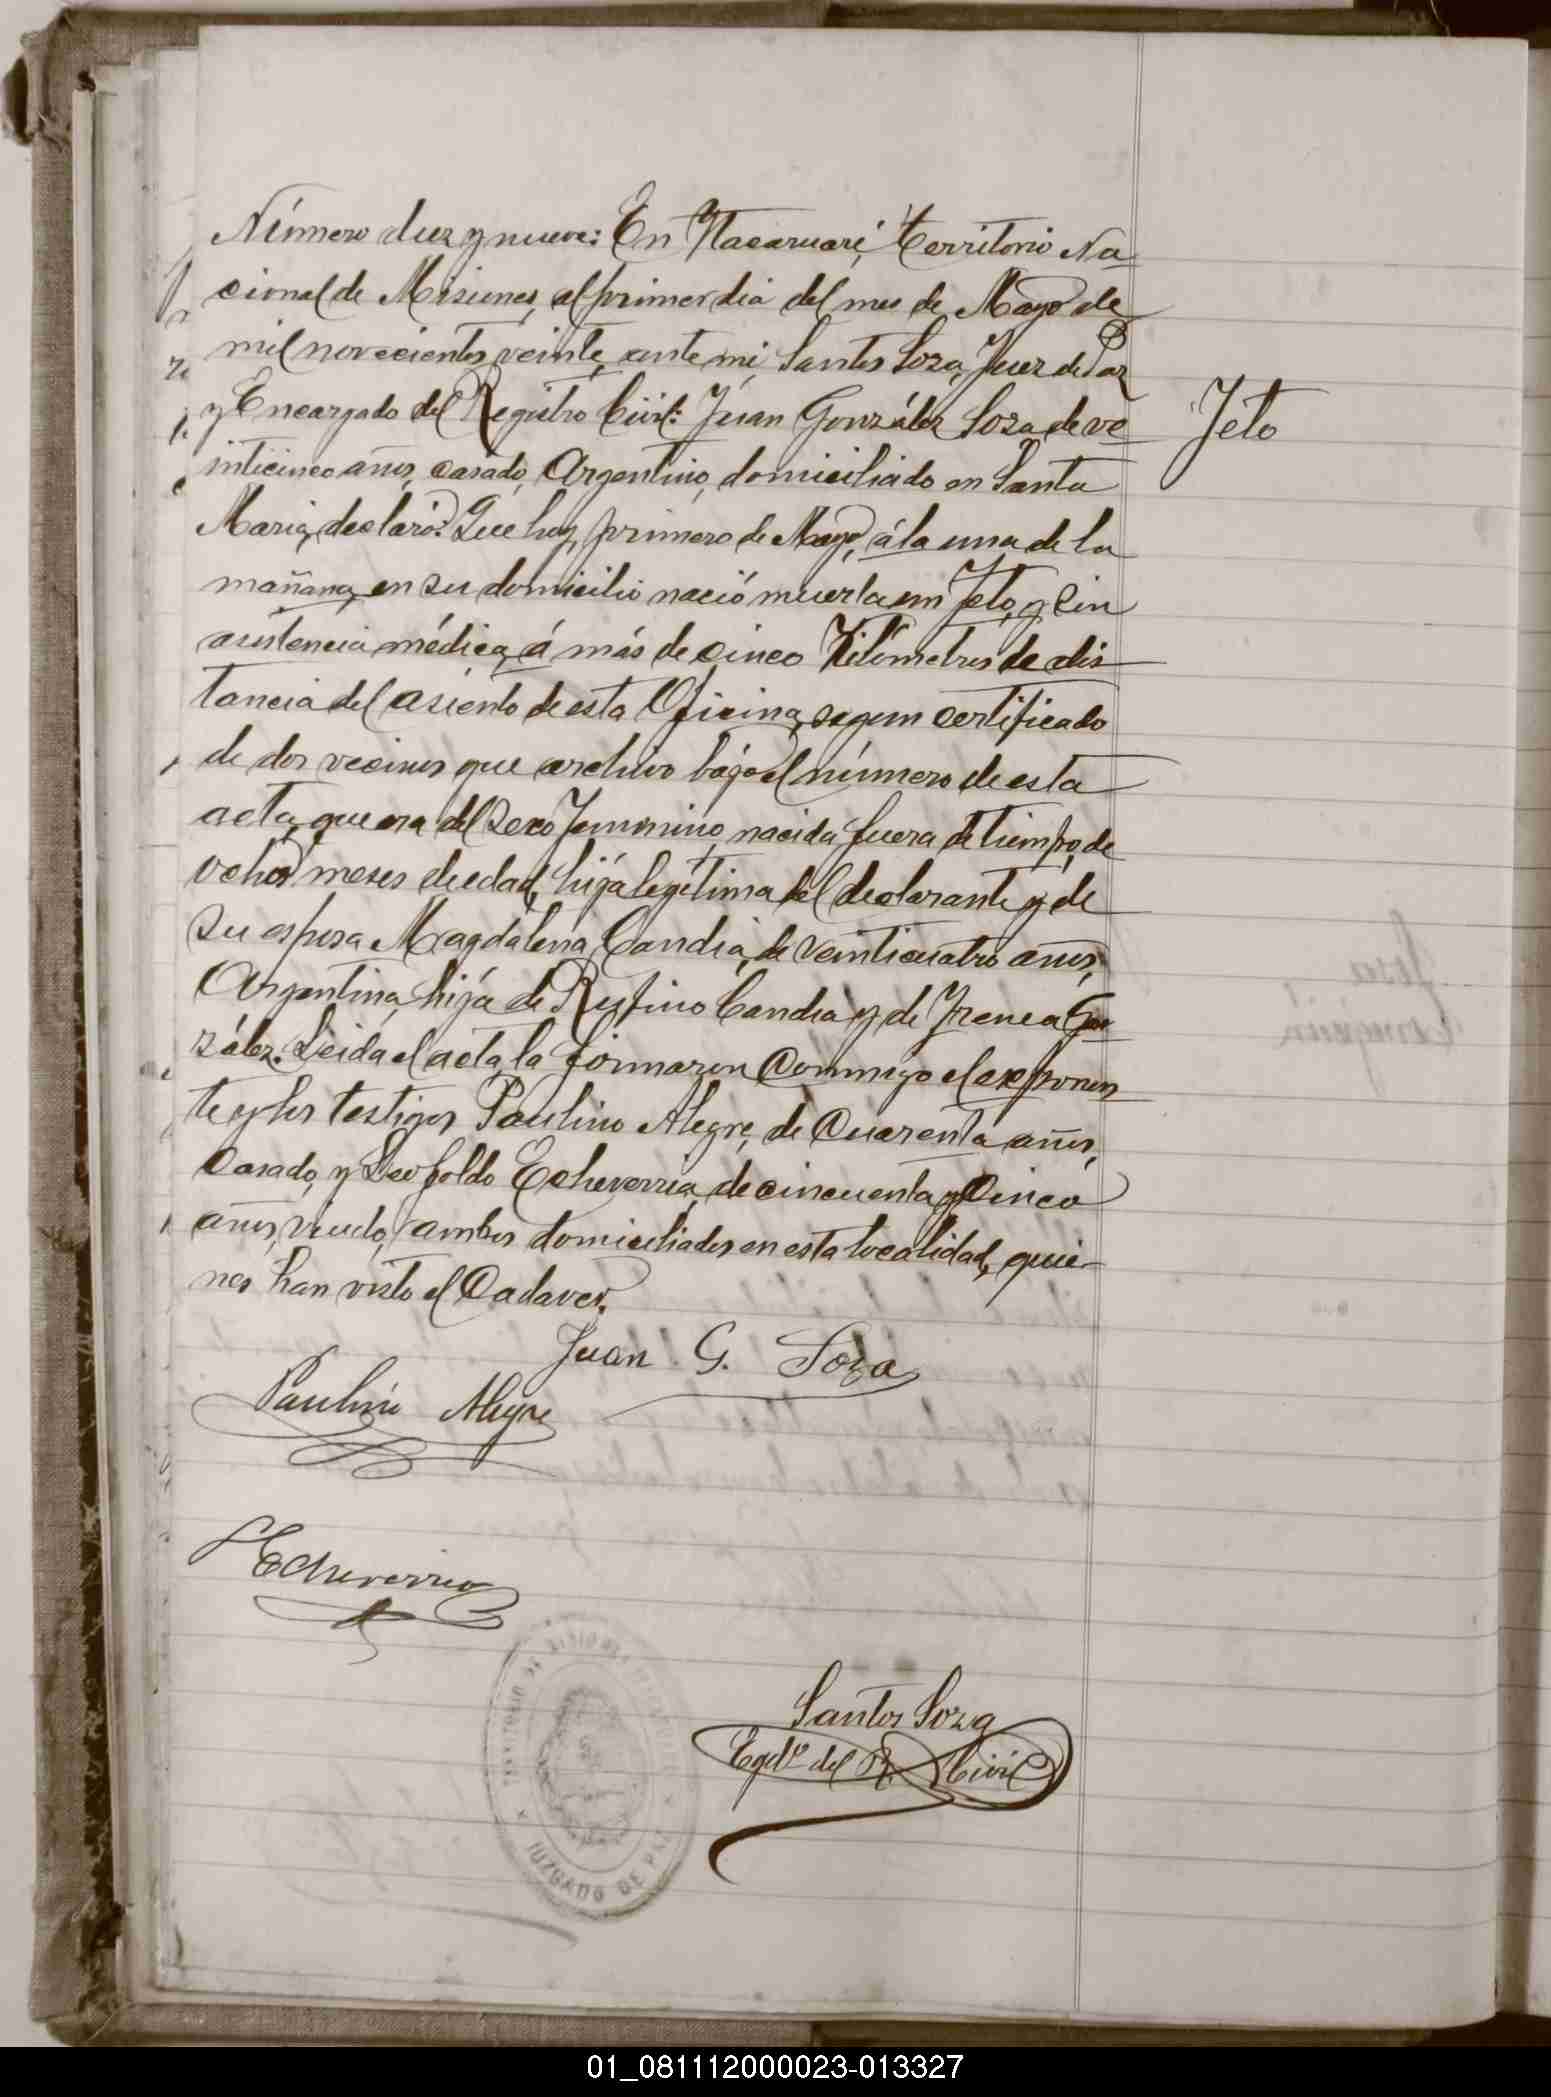 Número diez y nueve: En Ytacaruaré, territorio Na-
cional de Misiones, al primer dia del mes de Mayo de
mil novecientos veinte, ante mi, Santos Soza, Juez de Paz
y Encargado del Registro Civil: Júan González Soza de ve-
inticinco años, casado, Argentino, domiciliado en Santa
Maria, declaró: Que hoy, primero de Mayo, á la una de la
mañana, en su domicilio nació muerta un Feto, y sin
asistencia médica, á más de cinco Kilómetros de dis-
tancia del asiento de esta Oficina, segun certificado
de dos vecinos que archivo bájo el número de esta
acta, que era del sexo Femenino, nacida fuera de tiempo, de
ocho meses de edad, hija legítima del declarante y de
su esposa Magdalena Candia, de veinticuatro años,
Argentina, hija de Rufino Candia y de Irenea Gon-
zález. Leida el acta, la firmaron conmigo el exponen-
te y los testigos Paulino Alegre, de cuarenta años,
casado, y Leopoldo Echeverria, de cincuenta y cinco
años, viudo, ambos domiciliados en esta localidad, quie-
nes han visto el Cadaver.
Feto
Juan G. Soza
Paulino Alegre
LEcheverria
Santos Soza
Egdo. del R. Civil
TERRITORIO DE MISIONES
JUZGADO DE PAZ
01_081112000023-013327